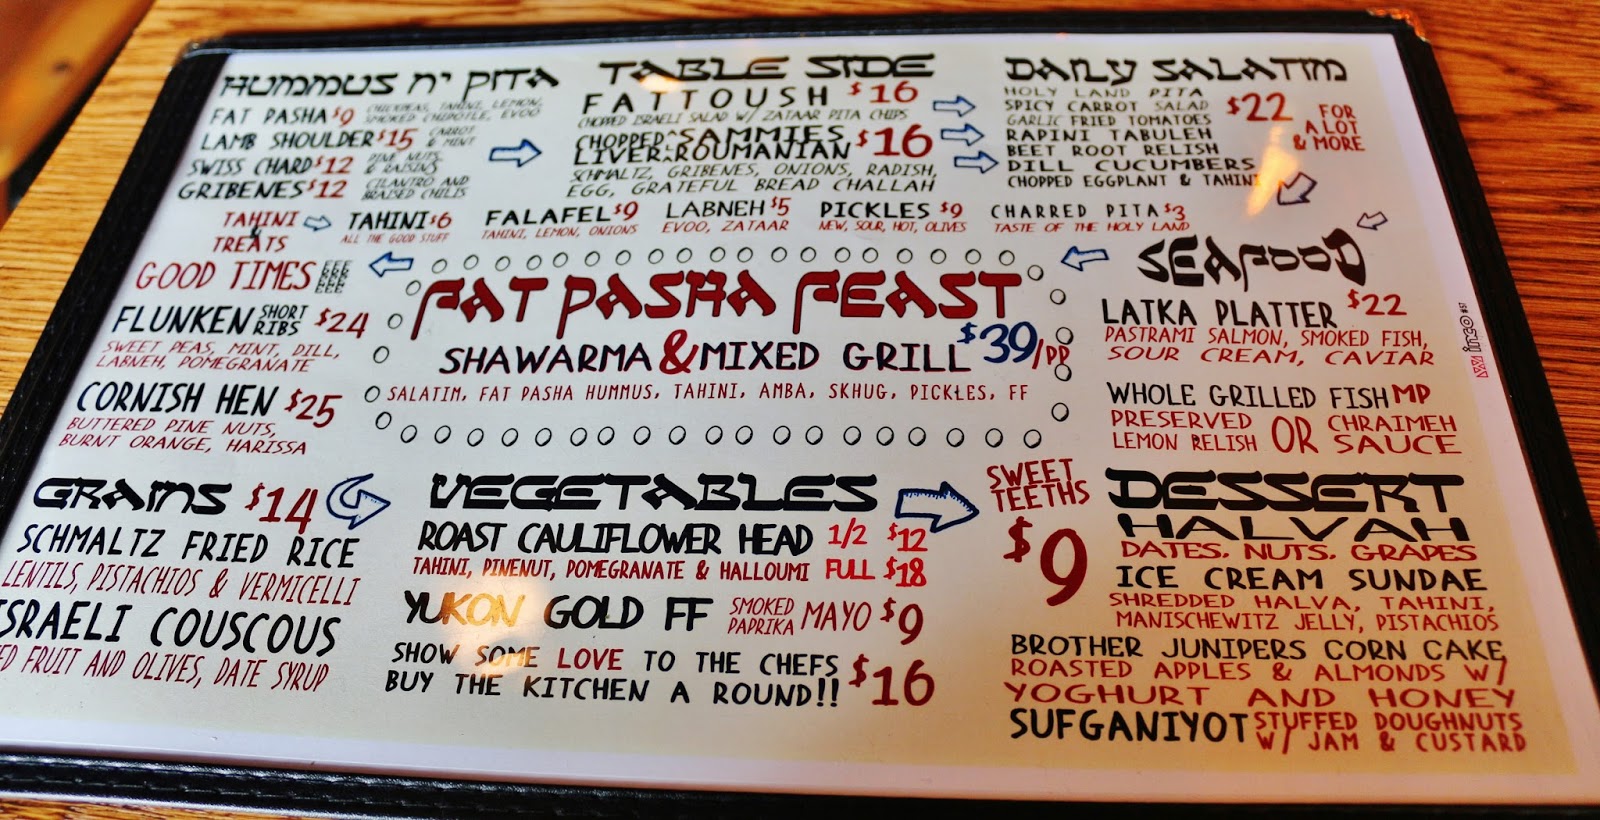 HUMMUS N' PITA
FAT PASHA $9 CHICKPEAS, TAHINI, LEMON,
SMOKED CHIPOTLE, EVOO
LAMB SHOULDER $15 CARROT
& MINT
SWISS CHARD $12 PINE NUTS
& RAISINS
GRIBENES $12 CILANTRO AND
BRAISED CHILIS
TABLE SIDE
FATTOUSH $16
CHOPPED ISRAELI SALAD W/ ZATAAR PITA CHIPS
CHOPPED SAMMIES
LIVER ROUMANIAN $16
SCHMALTZ, GRIBENES, ONIONS, RADISH,
EGG, GRATEFUL BREAD CHALLAH
DAILY SALATIM
HOLY LAND PITA
SPICY CARROT SALAD
GARLIC FRIED TOMATOES
RAPINI TABULEH
BEET ROOT RELISH
DILL CUCUMBERS
CHOPPED EGGPLANT & TAHINI
$22
FOR
A LOT
& MORE
TAHINI
&
TREATS
TAHINI $6
ALL THE GOOD STUFF
FALAFEL $9
TAHINI, LEMON, ONIONS
LABNEH $5
EVOO, ZATAAR
PICKLES $9
NEW, SOUR, HOT, OLIVES
CHARRED PITA $3
TASTE OF THE HOLY LAND
GOOD TIMES
FLUNKEN SHORT
RIBS $24
SWEET PEAS, MINT, DILL,
LABNEH, POMEGRANATE
CORNISH HEN $25
BUTTERED PINE NUTS,
BURNT ORANGE, HARISSA
FAT PASHA FEAST
SHAWARMA & MIXED GRILL $39/PP
SALATIM, FAT PASHA HUMMUS, TAHINI, AMBA, SKHUG, PICKLES, FF
SEAFOOD
LATKA PLATTER $22
PASTRAMI SALMON, SMOKED FISH,
SOUR CREAM, CAVIAR
WHOLE GRILLED FISH MP
PRESERVED
LEMON RELISH OR CHRAIMEH
SAUCE
GRAINS $14
SCHMALTZ FRIED RICE
LENTILS, PISTACHIOS & VERMICELLI
ISRAELI COUSCOUS
FRUIT AND OLIVES, DATE SYRUP
VEGETABLES
ROAST CAULIFLOWER HEAD 1/2 $12
TAHINI, PINENUT, POMEGRANATE & HALLOUMI FULL $18
YUKON GOLD FF SMOKED
PAPRIKA MAYO $9
SHOW SOME LOVE TO THE CHEFS
BUY THE KITCHEN A ROUND!! $16
SWEET
TEETHS
$9
DESSERT
HALVAH
DATES, NUTS, GRAPES
ICE CREAM SUNDAE
SHREDDED HALVA, TAHINI,
MANISCHEWITZ JELLY, PISTACHIOS
BROTHER JUNIPERS CORN CAKE
ROASTED APPLES & ALMONDS W/
YOGHURT AND HONEY
SUFGANIYOT STUFFED DOUGHNUTS
W/ JAM & CUSTARD